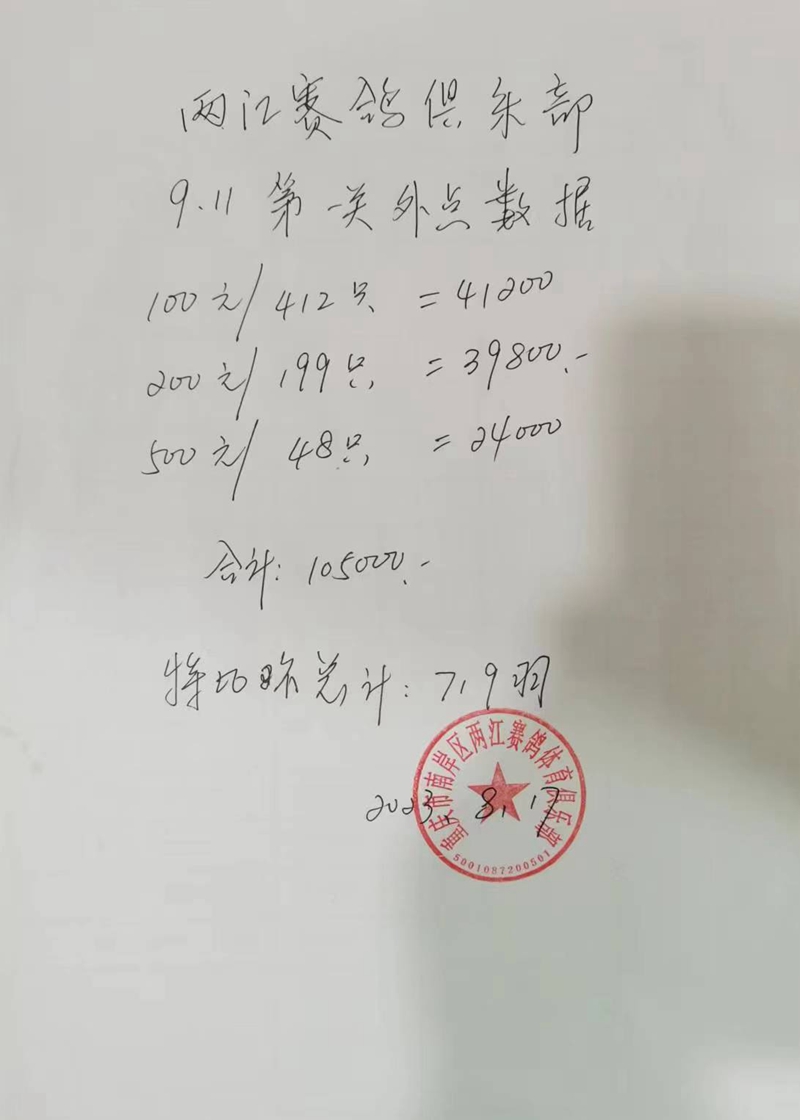 两江赛鸽俱乐部
9.11 第一关外点数据
100元/412只 = 41200
200元/199只 = 39800.-
500元/48只 = 24000
合计: 105000.-
特比环总计: 719羽
重庆市南岸区两江赛鸽体育俱乐部
2023.8.17
5001087200501